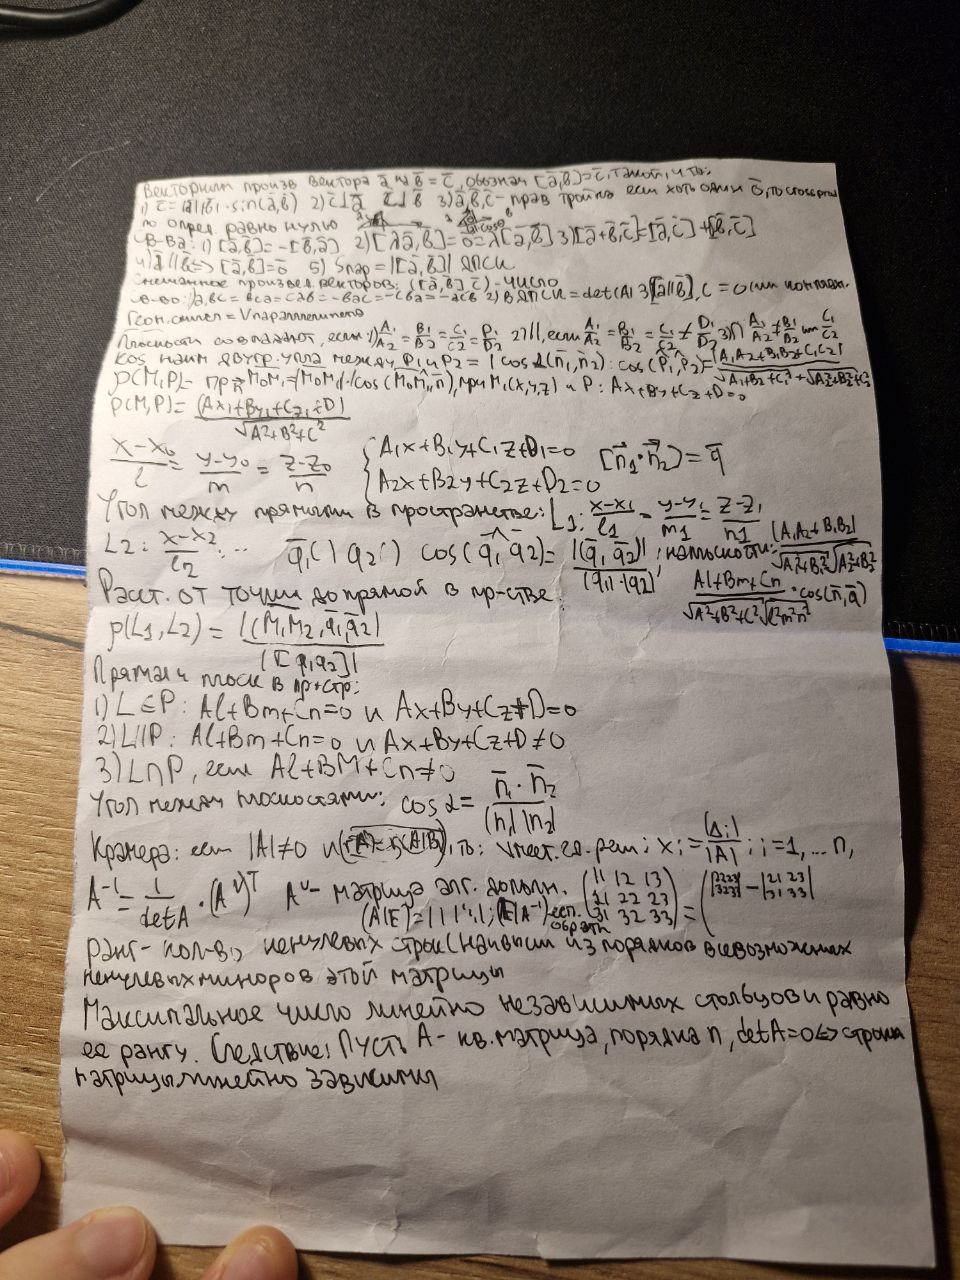 Векторным произв вектора ā на b̄ = c̄, обознач [ā,b̄]=c̄, такой, что:
1) c̄=|ā||b̄|·sin(a,b) 2) c̄⊥ā c̄⊥b̄ 3) ā,b̄,c̄ - прав тройка если хоть один 0̄, то
по опред. равно нулю
СВ-Ва: 1) [ā,b̄]=-[b̄,ā] 2) [λā,b̄]=0=λ[ā,b̄] 3) [ā+b̄,c̄]=[ā,c̄]+[b̄,c̄]
4) ā||b̄<=>[ā,b̄]=0̄ 5) Sпар=|[ā,b̄]| ЯПСК
Смешанное произвел. векторов: ([ā,b̄] c̄) - число
св-во: 1) a,bc=bca=cab=-bac=-cba=-acb 2) В ЯПСК=det(A) 3) [a||b], c=0 или комплан.
Геом. смысл = Vпараллепипета
Плоскости совпадают, если: 1) A₁/A₂=B₁/B₂=C₁/C₂=D₁/D₂ 2) ||, если A₁/A₂=B₁/B₂=C₁/C₂≠D₁/D₂ 3) ∩ A₁/A₂≠B₁/B₂ или C₁/C₂
Cos наим двугр. угла между P₁ и P₂=|cos∠(n̄₁,n̄₂): cos(P₁,P₂)=|A₁A₂+B₁B₂+C₁C₂|/√A₁²+B₂+C₁²+√A₂²+B₂²+C₂²
ρ(M,P)=прn̄M₀M₁=|M₀M₁|·|cos(M₀M₁,n̄), при M₁(x,y,z) и P: Ax+By+Cz+D=0
ρ(M,P)=(Ax₁+By₁+Cz₁+D)/√A²+B²+C²
x-x₀/l=y-y₀/m=z-z₀/n {A₁x+B₁y+C₁z+D₁=0 [n̄₁·n̄₂]=q̄
A₂x+B₂y+C₂z+D₂=0
Угол между прямыми в пространстве: L₁: x-x₁/l₁=y-y₁/m₁=z-z₁/n₁
L2: x-x₂/l₂... q̄₁() q₂() cos(q̄₁,q̄₂)=|(q̄₁,q̄₂)|/(q₁|·|q₂); на плоскости: |A₁A₂+B₁B₂|/√A₁²+B₁²√A₂²+B₂²
Расст. от точки до прямой в пр-стве Al+Bm+Cn/√A²+B²+C²√l²m²n²·cos(n̄,q̄)
ρ(L₁,L₂)=|(M₁M₂,q̄₁q̄₂)/|[q₁q₂]|
Прямая и плоск в пр-стр:
1) L∈P: Al+Bm+Cn=0 и Ax+By+Cz+D=0
2) L||P: Al+Bm+Cn=0 и Ax+By+Cz+D≠0
3) L∩P, если Al+BM+Cn≠0
Угол между плоскостями: cosα=n̄₁·n̄₂/|n₁||n₂|
Крамера: если |A|≠0 и (r(A)=r(A|B)), то: ед. реш: xᵢ=|Δᵢ|/|A|; i=1,...n,
A⁻¹=1/detA·(Aᵛ)ᵀ Aᵛ - матрица алг. дополн. (11 12 13 21 22 23 31 32 33)=(|2223 3233| -|21 23 31 33|
(A|E)=
обратн
ранг - кол-во ненулевых строк(наивысш из порядков всевозможных
ненулевых миноров этой матрицы
Максимальное число линейно независимых столбцов и равно
ее рангу. Следствие: Пусть A - кв. матрица, порядка n, detA=0<=>строки
матрицы линейно зависимы